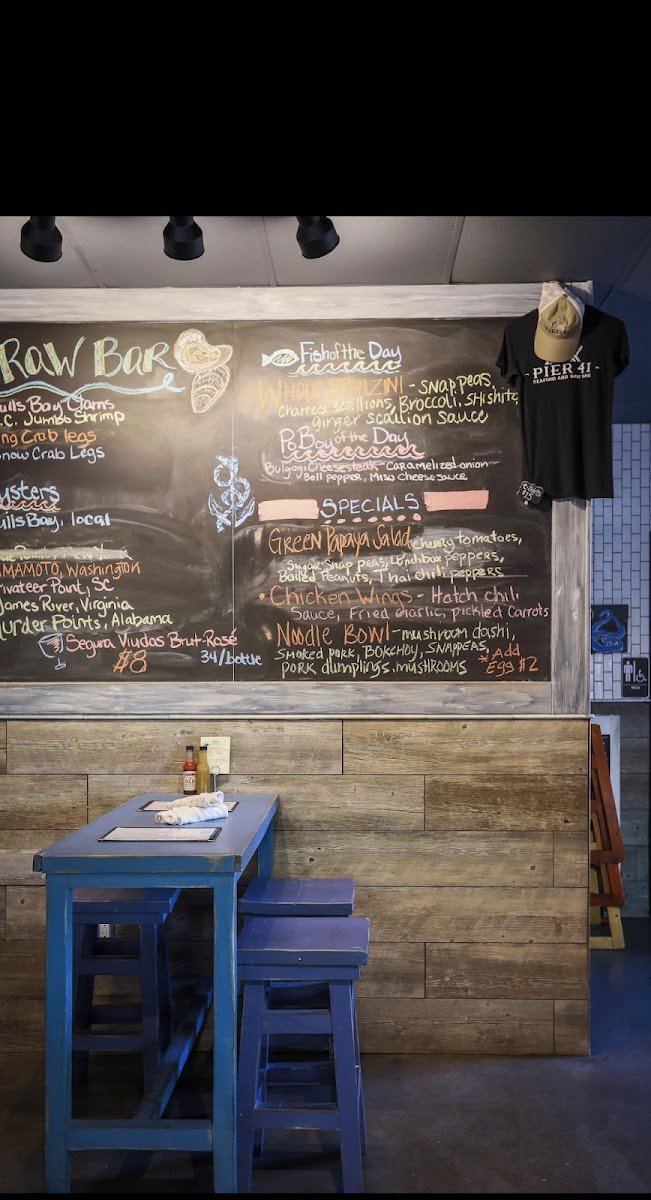 RAW BAR
Bulls Bay Clams
N.C. Jumbo Shrimp
King Crab legs
Snow Crab Legs
Oysters
Bulls Bay, local
YAMAMOTO, Washington
Privateer Point, SC
James River, Virginia
Murder Points, Alabama
Segura Viudas Brut-Rosé
$8 34/bottle
Fish of the Day
Whole Branzini - snap peas,
charred scallions, Broccoli, shishito
ginger scallion sauce
Po Boy of the Day
Bulgogi Cheesesteak - caramelized onion
Bell pepper, Miso Cheese sauce
SPECIALS
Green Papaya Salad cherry tomatoes,
Sugar Snap peas, Lunchbox peppers,
Boiled Peanuts, Thai chili peppers
• Chicken Wings - Hatch chili
Sauce, Fried Garlic, pickled Carrots
• Noodle Bowl - mushroom dashi,
smoked pork, BOKCHOY, SNAPPEAS,
PORK dumplings, mushrooms
*Add
Egg $2
- PIER 41 -
SEAFOOD AND RAW BAR